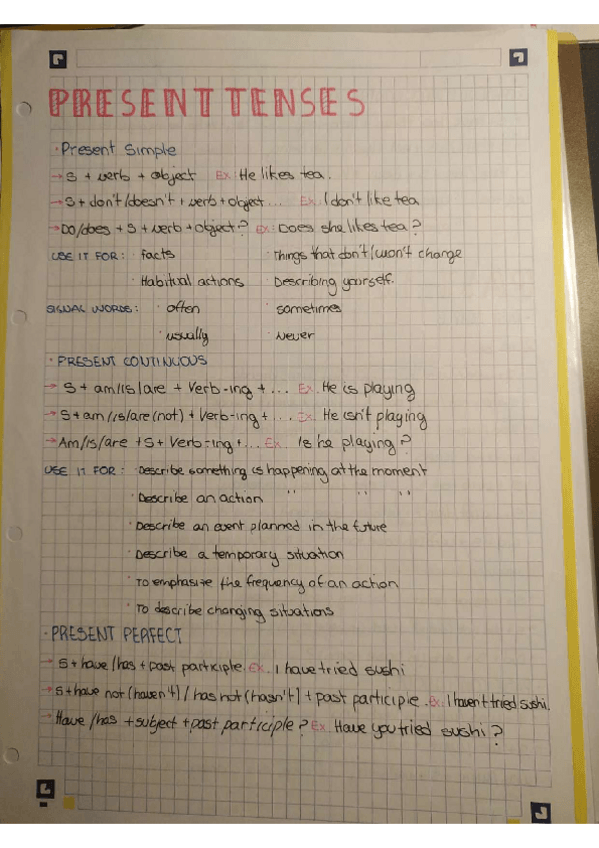 PRESENT TENSES
· Present Simple
→ S + verb + object Ex: He likes tea.
→ S + don't/doesn't + verb + object... Ex: I don't like tea
→ DO/does + S + verb + object? Ex: Does she likes tea?
USE IT FOR: · facts · Things that don't/won't change
· Habitual actions · Describing yourself.
SIGNAL WORDS: · often · sometimes
· usually · never
· PRESENT CONTINUOUS
→ S + am/is/are + Verb-ing + ... Ex. He is playing
→ S + am/is/are (not) + Verb-ing + ... Ex. He isn't playing
→ Am/is/are + S + Verb-ing + ... Ex. Is he playing?
USE IT FOR: · Describe something is happening at the moment
· Describe an action " " "
· Describe an event planned in the future
· Describe a temporary situation
· To emphasize the frequency of an action
· To describe changing situations
· PRESENT PERFECT
→ S + have/has + past participle. Ex. I have tried sushi
→ S + have not (haven't) / has not (hasn't) + past participle. Ex. I haven't tried sushi.
→ Have/has + subject + past participle? Ex. Have you tried sushi?